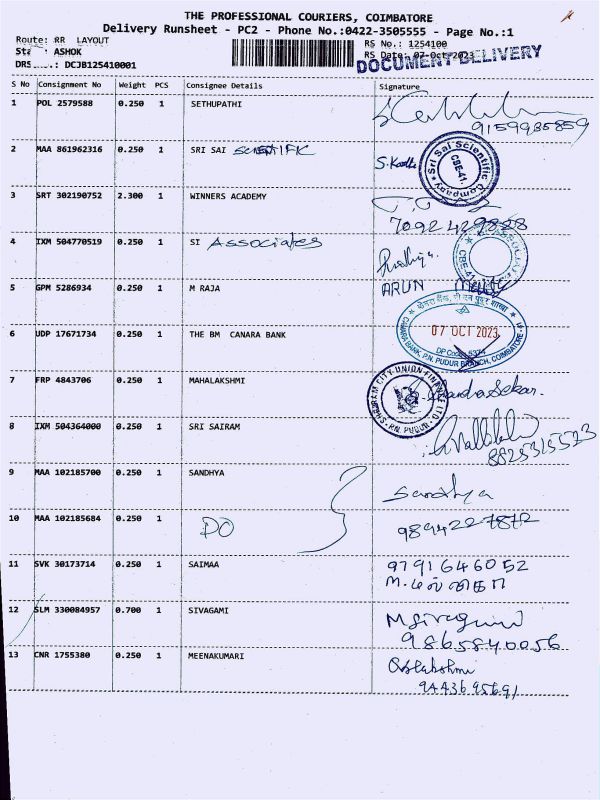 THE PROFESSIONAL COURIERS, COIMBATORE
Delivery Runsheet - PC2 - Phone No.:0422-3505555 - Page No.:1
Route: RR LAYOUT
ASHOK
DCJB125410001
RS No.: 1254100
RS Date: 07-Oct-2023
DOCUMENT DELIVERY
S No Consignment No Weight PCS Consignee Details Signature
1 POL 2579588 0.250 1 SETHUPATHI
9159935859
2 MAA 861962316 0.250 1 SRI SAI SCIENTIFIC
Sri Sai Scientific Company CBE-41
3 SRT 302190752 2.300 1 WINNERS ACADEMY
7092429828
4 IXM 504770519 0.250 1 SI Associates
CBE-41
5 GPM 5286934 0.250 1 M RAJA
ARUN
6 UDP 17671734 0.250 1 THE BM CANARA BANK
07 OCT 2023
CANARA BANK, P.N. PUDUR BRANCH, COIMBATORE
7 FRP 4843706 0.250 1 MAHALAKSHMI
CITY UNION FINANCE LTD P.N. PUDUR
8 IXM 504364000 0.250 1 SRI SAIRAM
8825315523
9 MAA 102185700 0.250 1 SANDHYA
Sandhya
10 MAA 102185684 0.250 1 DO
9894227872
11 SVK 30173714 0.250 1 SAIMAA
9791646052
12 SLM 330084957 0.700 1 SIVAGAMI
9865840056
13 CNR 1755380 0.250 1 MEENAKUMARI
9443695691